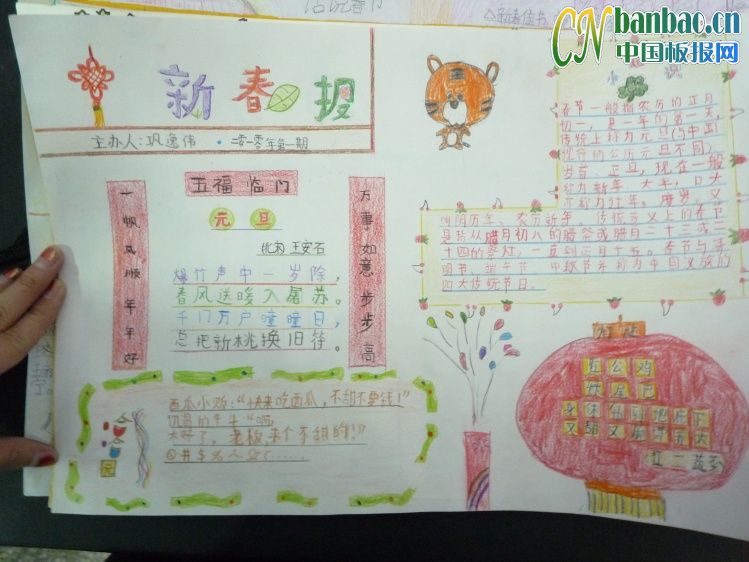 CN banbao.cn
中国板报网
新春报
主办人:巩逸伟·二零一零年第一期
五福临门
一帆风顺年年好
万事如意步步高
元旦
北宋 王安石
爆竹声中一岁除,
春风送暖入屠苏。
千门万户曈曈日,
总把新桃换旧符。
西瓜小鸡:“快来吃西瓜,不甜不要钱!”
饥渴的牛牛:“啊,
太好了,老板,来个不甜的!”
小知识
春节一般指农历的正月
初一,是一年的第一天,
传统上称为元旦(与中国
现行的公历元旦不同)、
岁首、正旦,现在一般
称为新年、大年,口头
阴历年、农历新年。传统意义上的春节
是指从腊月初八的腊祭或腊月二十三或二
十四的祭灶,一直到正月十五。春节与清
明节、端午节、中秋节并称为中国汉族的
四大传统节日。
红公鸡